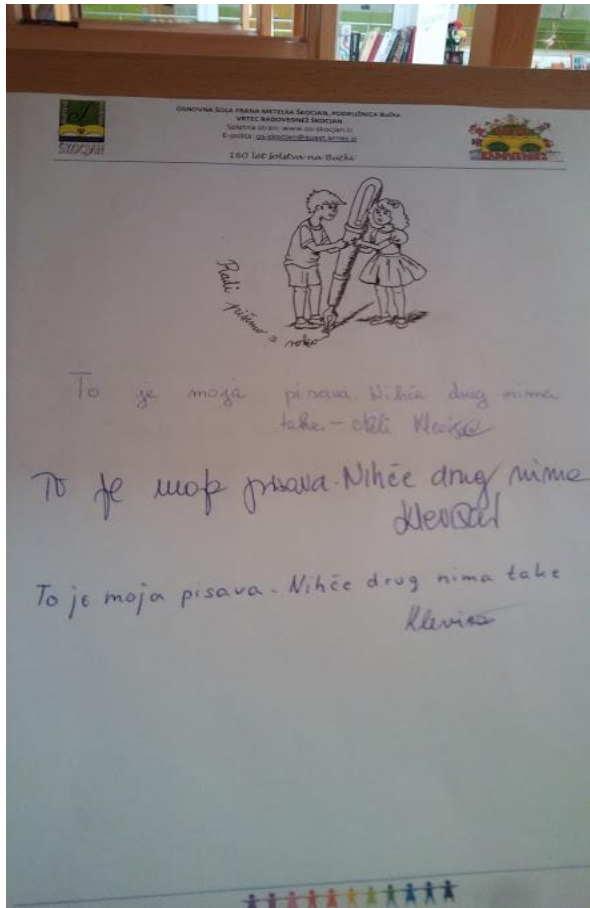 OSNOVNA ŠOLA FRANA METELKA ŠKOCJAN, PODRUŽNICA BUČKA
VRTEC RADOVEDNEŽ ŠKOCJAN
Spletna stran: www.os-skocjan.si
E-pošta: os-skocjan@guest.arnes.si
ŠKOCJAN
RADOVEDNEŽ
160 let šolstva na Bučki
Radi pišemo z roko
To je moja pisava. Nihče drug nima
take
To je moja pisava. Nihče drug nima
To je moja pisava. Nihče drug nima take